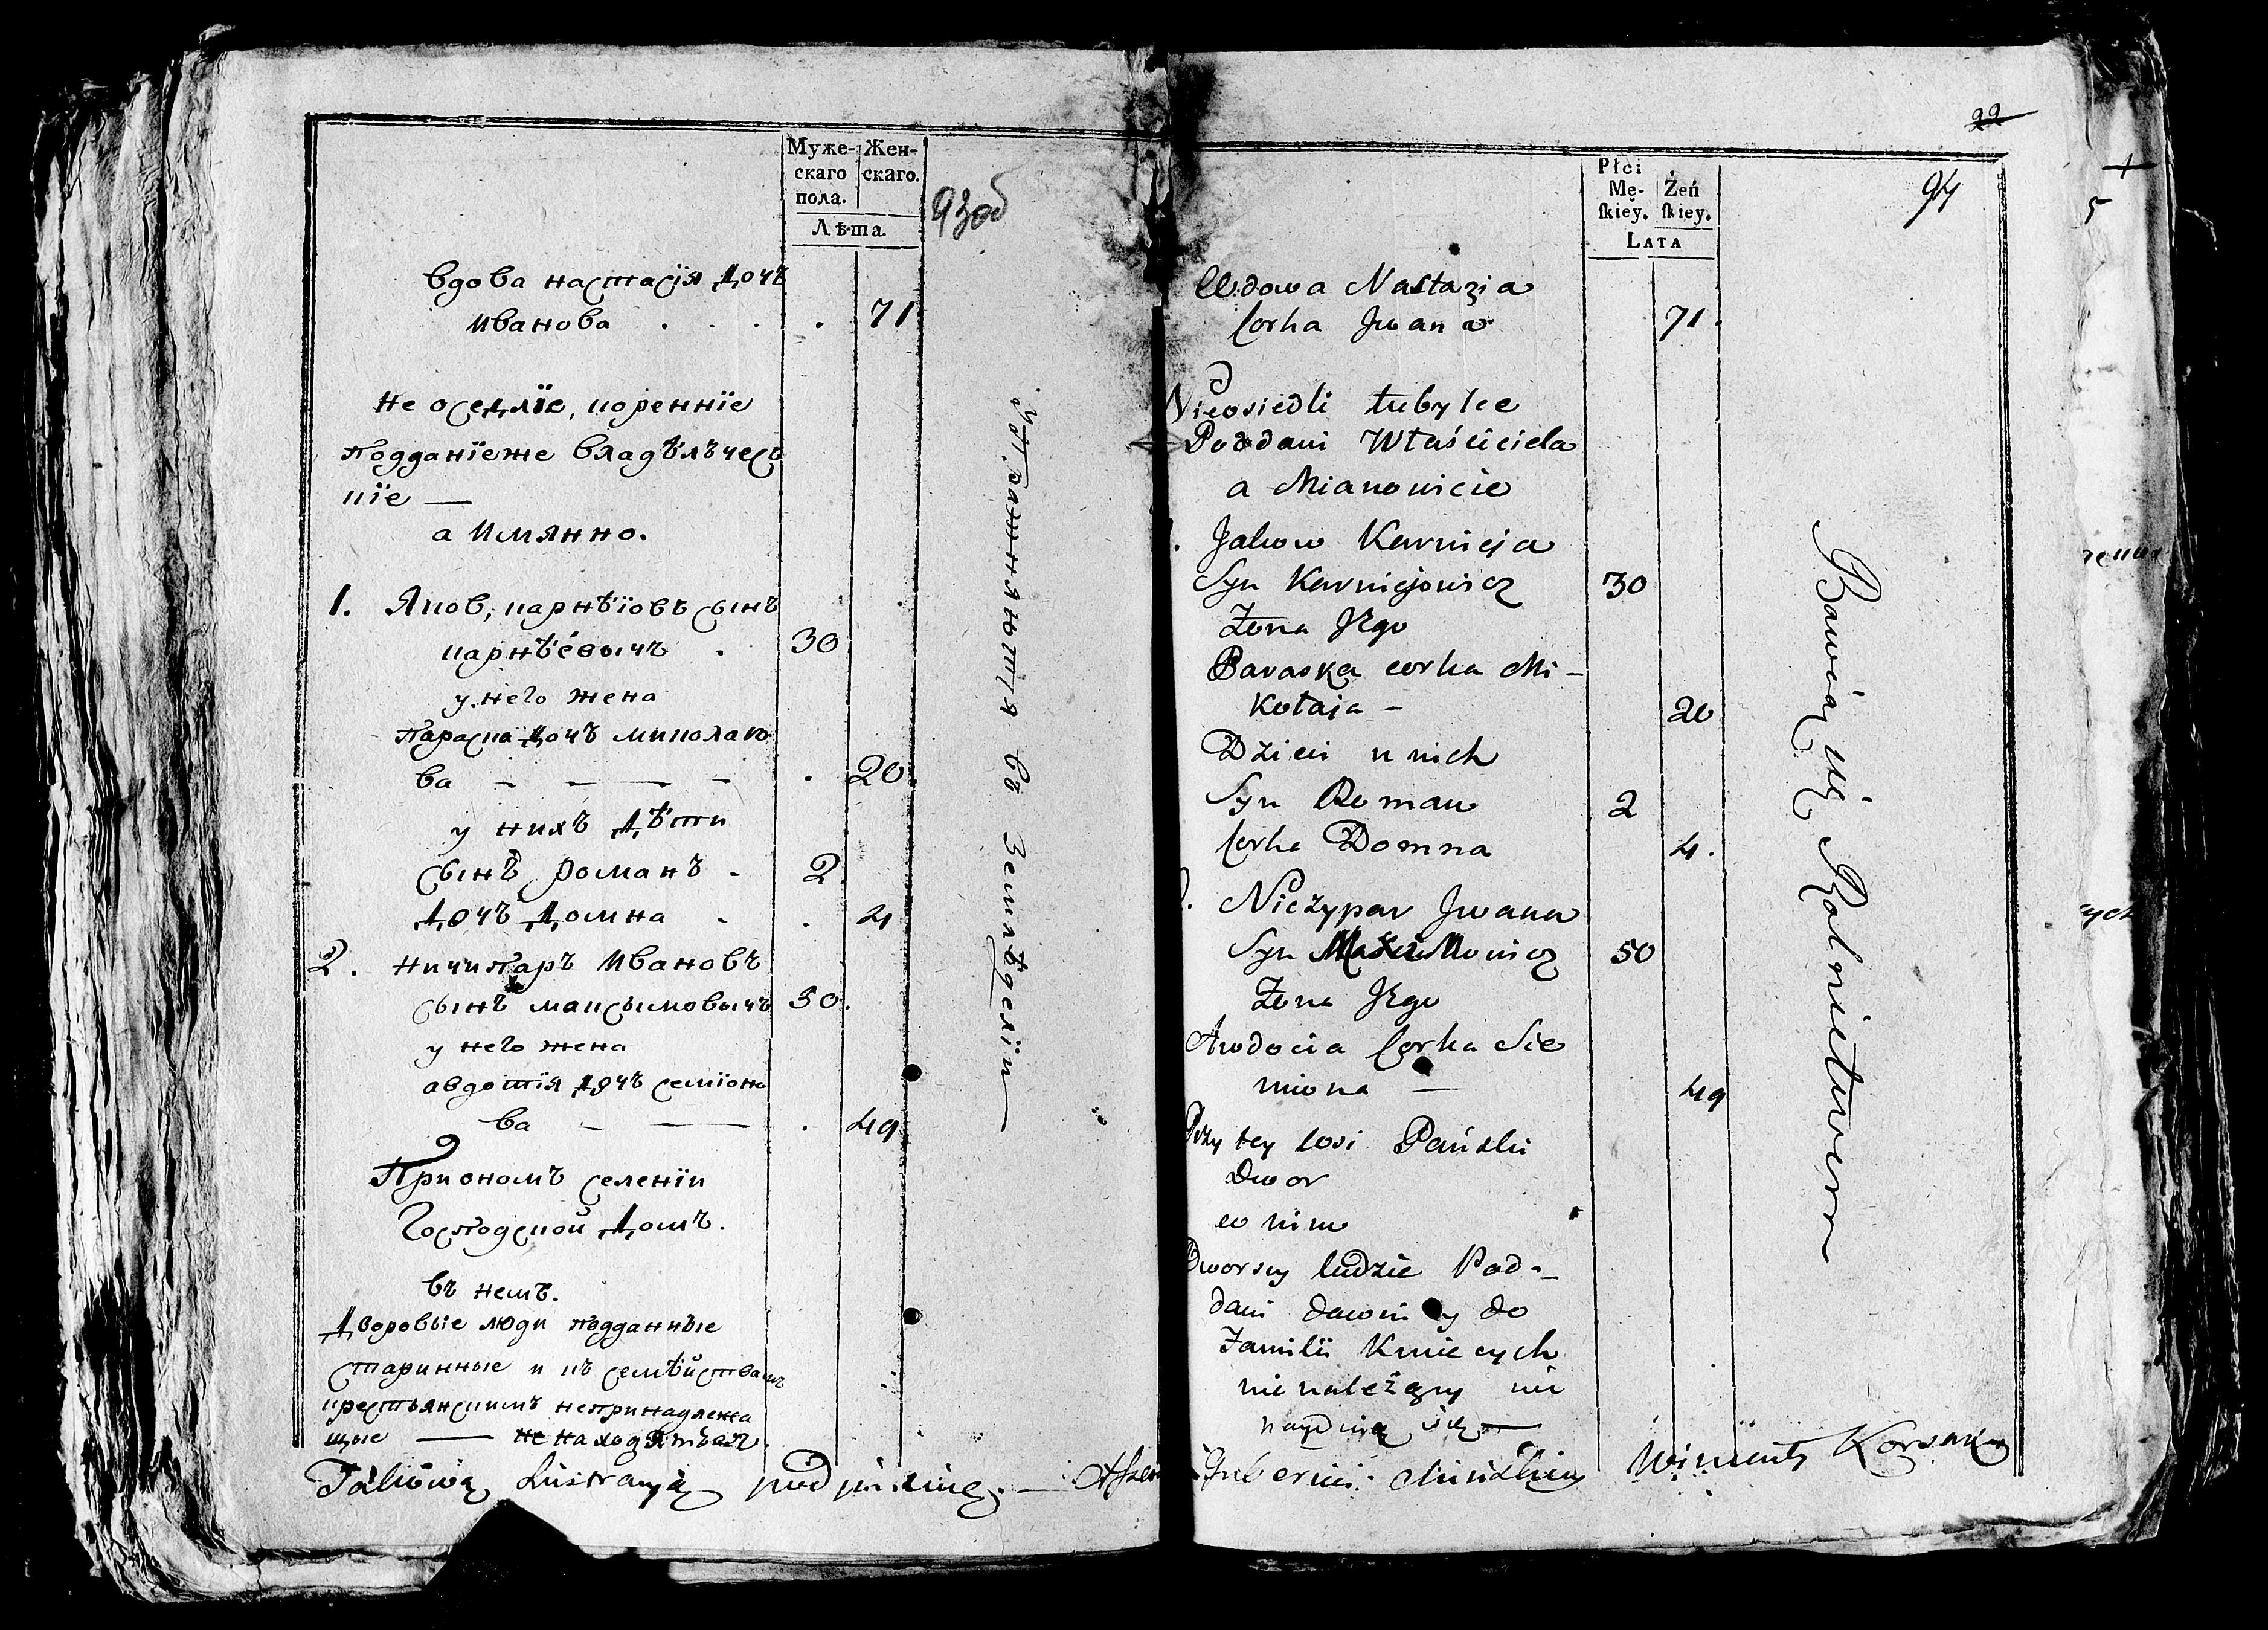 Муже-
скаго
пола.
Жен-
скаго.
Лѣта.
93об
вдова настасія дочь
Иванова . . . . 71
не оседлїе, кореннїе
подданїеже владѣльчесь
кїе —
а Имянно.
1. Яков, карнѣїовъ сынъ
карнѣевычъ . 30
у него жена
Параска дочъ миколаю
ва - - — - . 20
у нихъ дѣти
сынъ романъ . 2
дочъ домна . . 4
2. ничипаръ Ивановъ
сынъ максымовычъ 50.
у него жена
авдотія дочъ семіоно
ва - — . 49
При ономъ селенїи
Господской домъ.
въ немъ.
Дворовые люди подданные
старинные и къ семѣйствамъ
крестьянскимъ непринадлежа
щые — не находятьсе.
въ земледелїи —
Płci
Mę-
ſkiey.
Żeń
ſkiey.
LATA
22
94
Wdowa Nastazia
Corka Jwana 71.
Nieosiedli tubylce
Poddani Właściciela
a Mianowicie
Jakow Karnieja
Syn Karniejowicz 30
Żona Jego
Paraska corka Mi-
kołaja - 20
Dzieci u nich
Syn Roman 2
Corka Domna 4.
Niczypar Jwana
Syn Maximowicz 50
Żona Jego
Awdocia Corka Sie
miona — 49
Przy tey wsi Pański
Dwor
w nim
Dworscy ludzie Pod-
dani dawni y do
Familii Kmiecych
nie należący nie
nayduią się —
Bawią się Rolnictwem
Takową Lustracyą podpisuię. — Assess
Gubernii Minskiey Wincenty Korsak